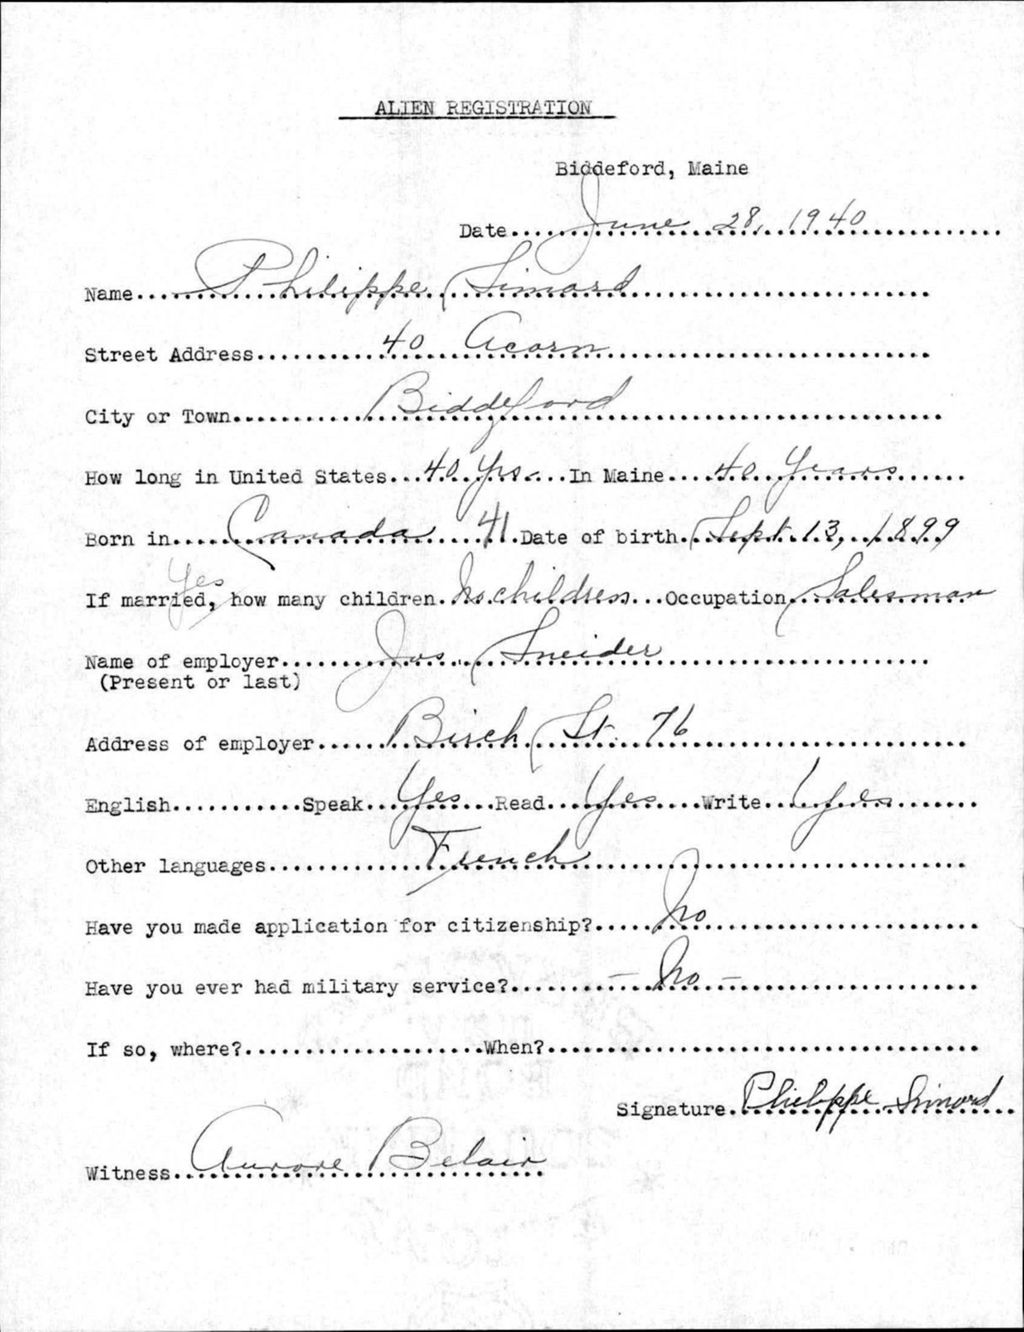 ALIEN REGISTRATION
Biddeford, Maine
Date June 28, 1940
Name Philippe Simard
Street Address 40 Acorn
City or Town Biddeford
How long in United States 40 Yrs. In Maine 40 Years
Born in Canada 41 Date of birth Sept. 13, 1899
Yes
If married, how many children No children Occupation Salesman
Name of employer Jos. Sneider
(Present or last)
Address of employer Birch St. 76
English Speak Yes Read Yes Write Yes
Other languages French
Have you made application for citizenship? No
Have you ever had military service? - No -
If so, where? When?
Signature Philippe Simard
Witness Aurore Belair